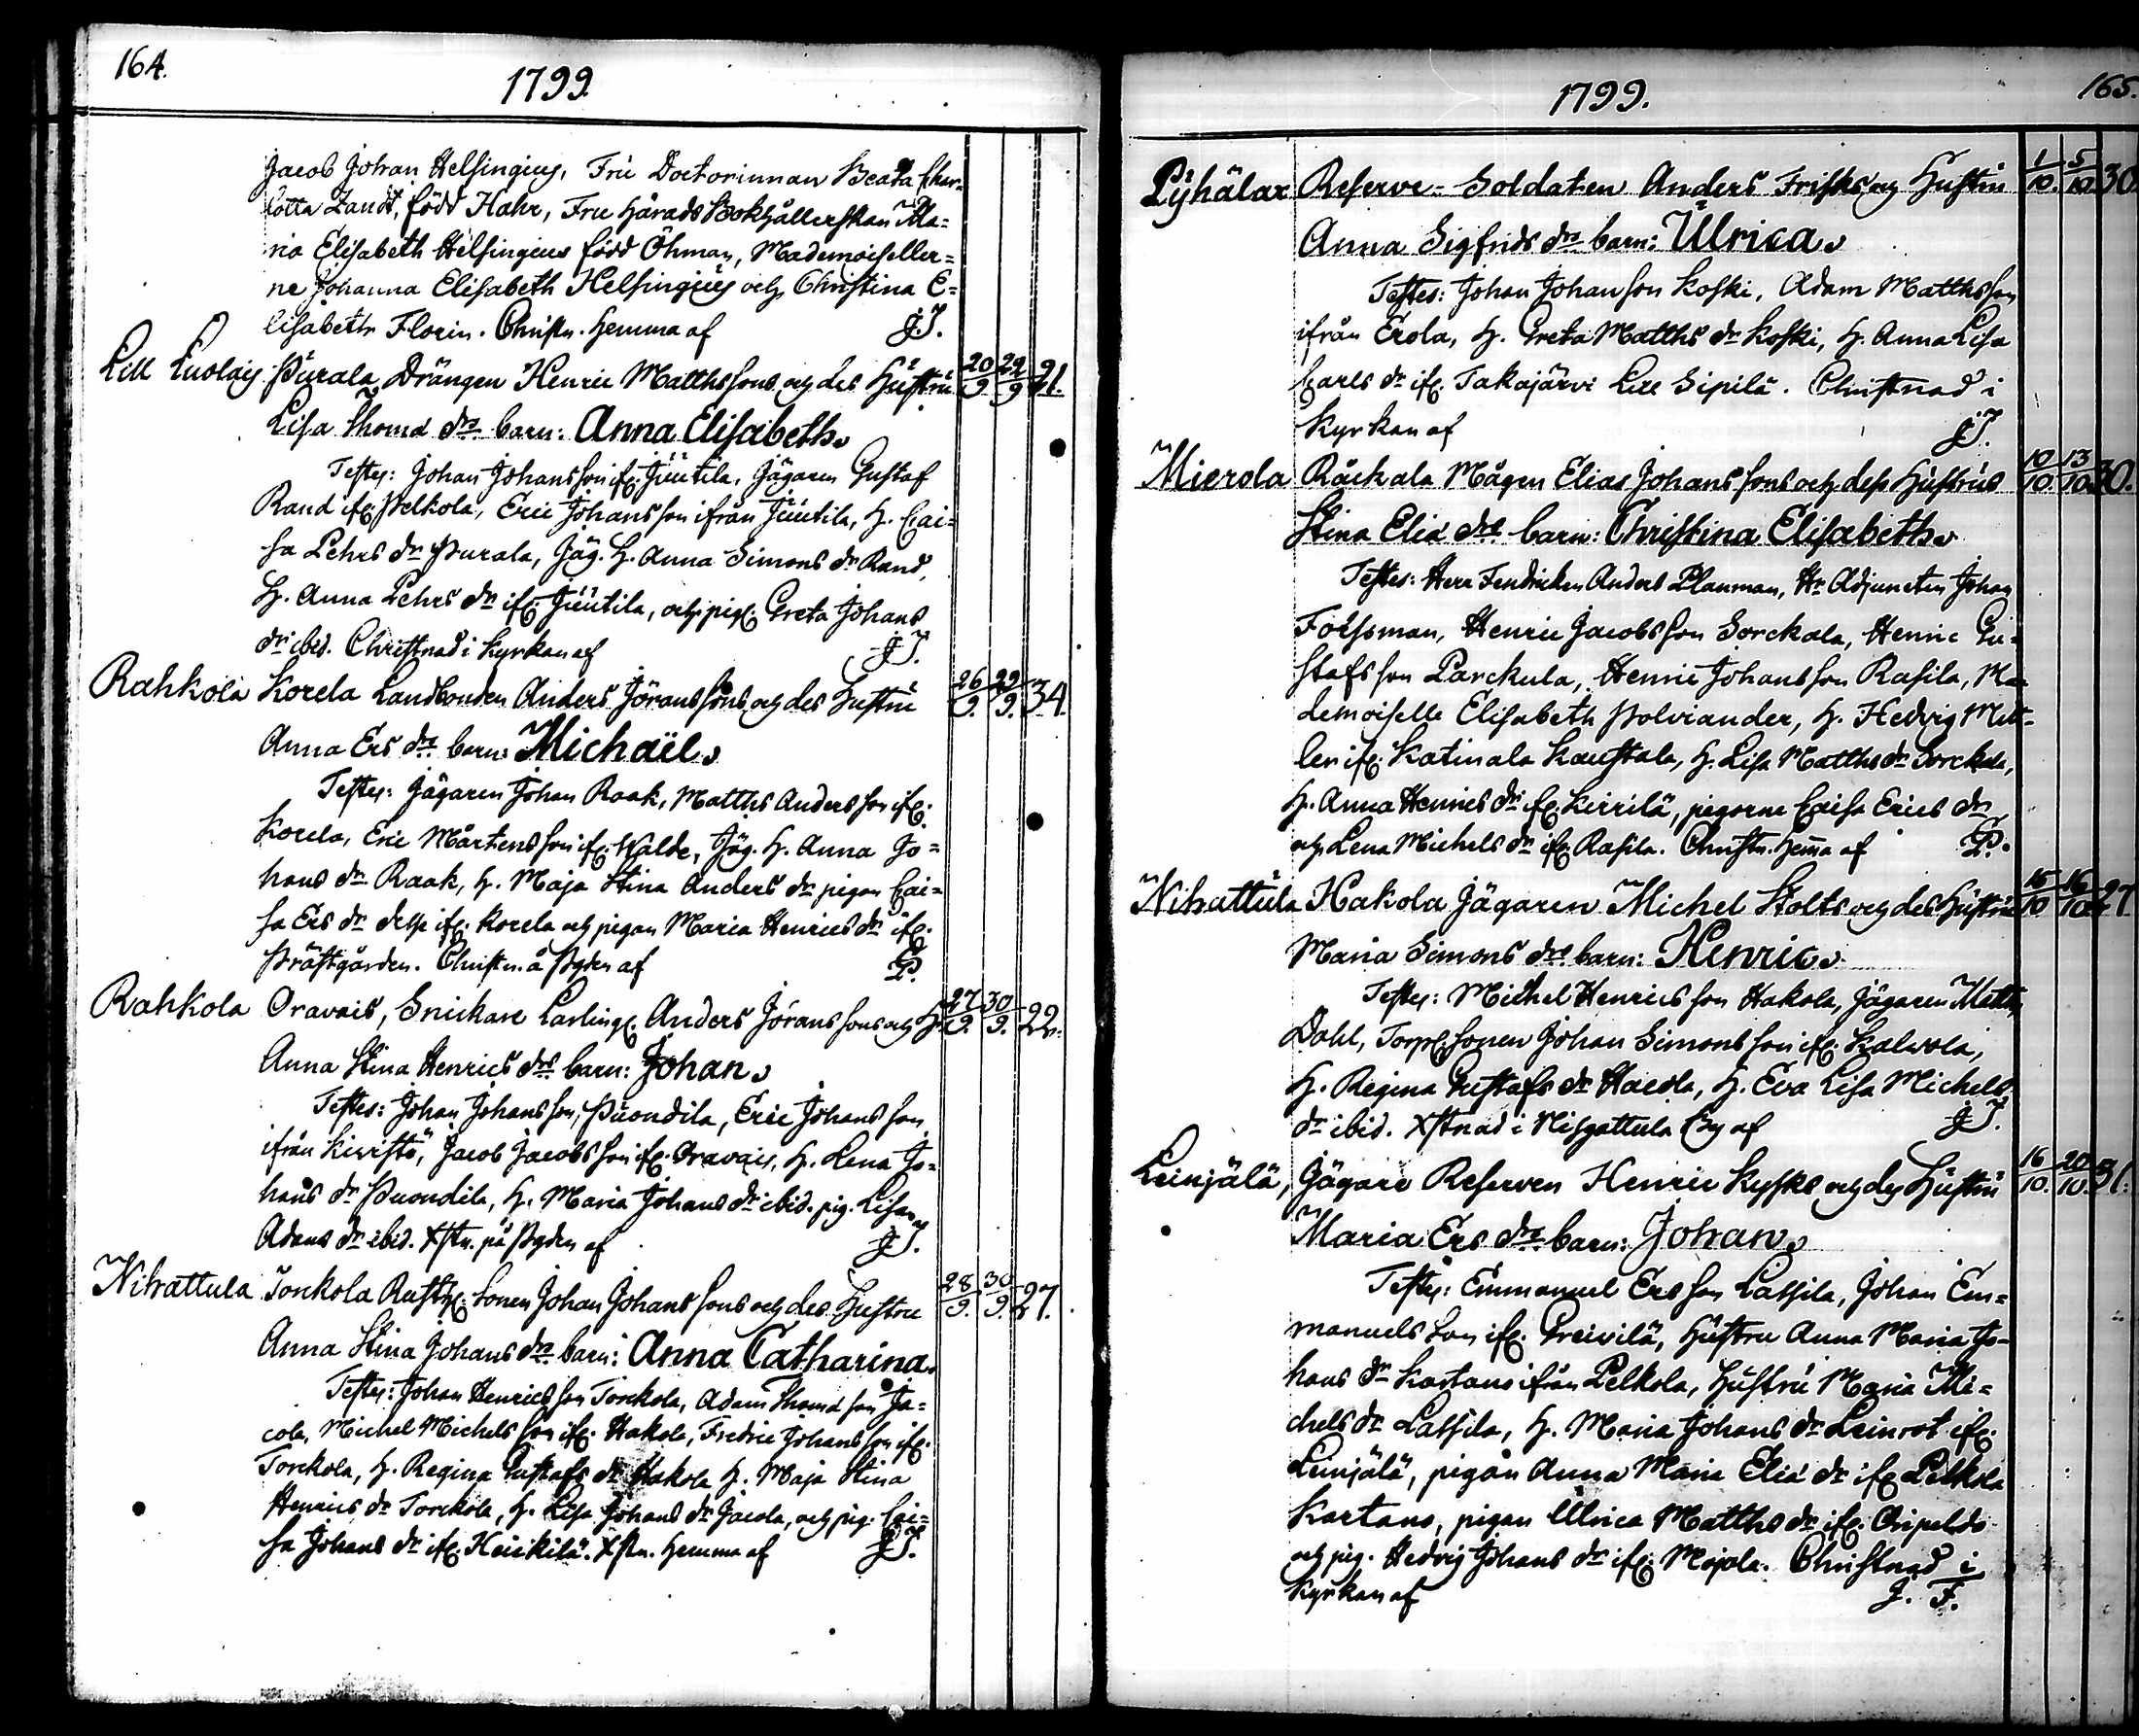 164.
1799.
Jacob Johan Helsingius, Fru Doctorinnan Beata Char-
lotta Zandt, född Hahr, Fru Härads Bokhållerskan Ma-
ria Elisabeth Helsingius född Öhman, Mademoiseller-
ne Johanna Elisabeth Helsingius och Christina E-
lisabeth Florin. Christn. hemma af JF.
Lill Luolais Purala Drängen Henric Matthssons och des Hustru 20/9 22/9 21.
Lisa Thomæ drs barn: Anna Elisabeth.
Testes: Johan Johansson ifr. Juutila, Jägaren Gustaf
Rand ifr. Pelkola, Eric Johansson ifrån Juutila, H. Cai-
sa Pehrs dr Purala, Jäg. H. Anna Simons dr Rand,
H. Anna Pehrs dr ifr. Juutila, och pig. Greta Johans
dr ibid. Christnad i Kyrkan af JF.
Rahkola Korela Landbonden Anders Göranssons och des Hustru 26/9. 29/9. 34.
Anna Ers drs barn: Michaël.
Testes: Jägaren Johan Raak, Matths Andersson ifr.
Korela, Eric Mårtensson ifr. Walde, Jäg. H. Anna Jo-
hans dr Raak, H. Maja Stina Anders dr pigan Cai-
sa Ers dr ifr. Korela och pigan Maria Henrics dr ifr.
Prästgården. Christn. å Bygden af P.
Rahkola Oravais, Snickare Lärling. Anders Göranssons och H. 27/9. 30/9. 22.
Anna Stina Henrics drs barn: Johan.
Testes: Johan Johansson, Puondila, Eric Johansson
ifrån Kivistö, Jacob Jacobsson ifr. Oravais, H. Lena Jo-
hans dr Puondila, H. Maria Johans dr ibid. pig. Lisa
Adams dr ibid. Xstn. på Bygden af JF.
Nihattula Torckola Rusth. Sonen Johan Johanssons och des Hustru 28/9. 30/9. 27.
Anna Stina Johans drs barn: Anna Catharina.
Testes: Johan Henricsson Torckola, Adam Thomæ son Ja-
cola, Michel Michelsson ifr. Hakola, Fredric Johansson ifr.
Torckola, H. Regina Gustafs dr Hakola H. Maja Stina
Henrics dr Torckola, H. Lisa Johans dr Jacola, och pig. Cai-
sa Johans dr ifr. Heickilä. Xstn. hemma af JF.
1799.
165.
Pyhälax Reserve-Soldaten Anders Frisks och Hustru 1/10. 5/10. 30
Anna Sigfrids drs barn: Ulrica.
Testes: Johan Johansson Koski, Adam Matthsson
ifrån Erola, H. Greta Matths dr Koski, H. Anna Lisa
Carls dr ifr. Takajärvi Sipilä. Christnad i
Kyrkan af JF.
Mierola Räckala Mågen Elias Johanssons och dess Hustrus 10/10. 13/10. 30.
Stina Eliæ drs barn: Christina Elisabeth.
Testes: Herr Fendricken Anders Planman, Hr Adjuncten Johan
Forssman, Henric Jacobsson Sorckala, Henric Gu-
stafsson Parckula, Henric Johansson Rasila, Ma-
demoiselle Elisabeth Polviander, H. Hedvig Mell-
len ifr. Katinala Kaustala, H. Lisa Matths dr Sorckala,
H. Anna Henrics dr ifr. Kirrilä, pigorne Caisa Erics dr
och Lena Michels dr ifr. Rasila. Christn. hemma af P.
Nihattula Hakola Jägaren Michel Stolts och des Hustru 15/10 16/10 27
Maria Simons drs barn: Henric.
Testes: Michel Henricsson Hakola, Jägaren Matts
Dahl, Torp. Sonen Johan Simonsson ifr. Kalvola,
H. Regina Gustafs dr Hacola, H. Eva Lisa Michels
dr ibid. Xstnad i Nihattula By af JF.
Leinjälä, Jägare Reserven Henric Kysks och des Hustru 16/10. 20/10. 31.
Maria Ers drs barn: Johan.
Testes: Emmanuel Ersson Lassila, Johan Em-
manuelsson ifr. Preivilä, Hustru Anna Maria Jo-
hans dr Kartano ifrån Pelkola, Hustru Maria Mi-
chels dr Lassila, H. Maria Johans dr Leinrot ifr.
Leinjälä, pigan Anna Maria Eliæ dr ifr. Pelkola
Kartano, pigan Ulrica Matths dr ifr.
och pig. Hedvig Johans dr ifr. Mojola. Christnad i
Kyrkan af J. F.